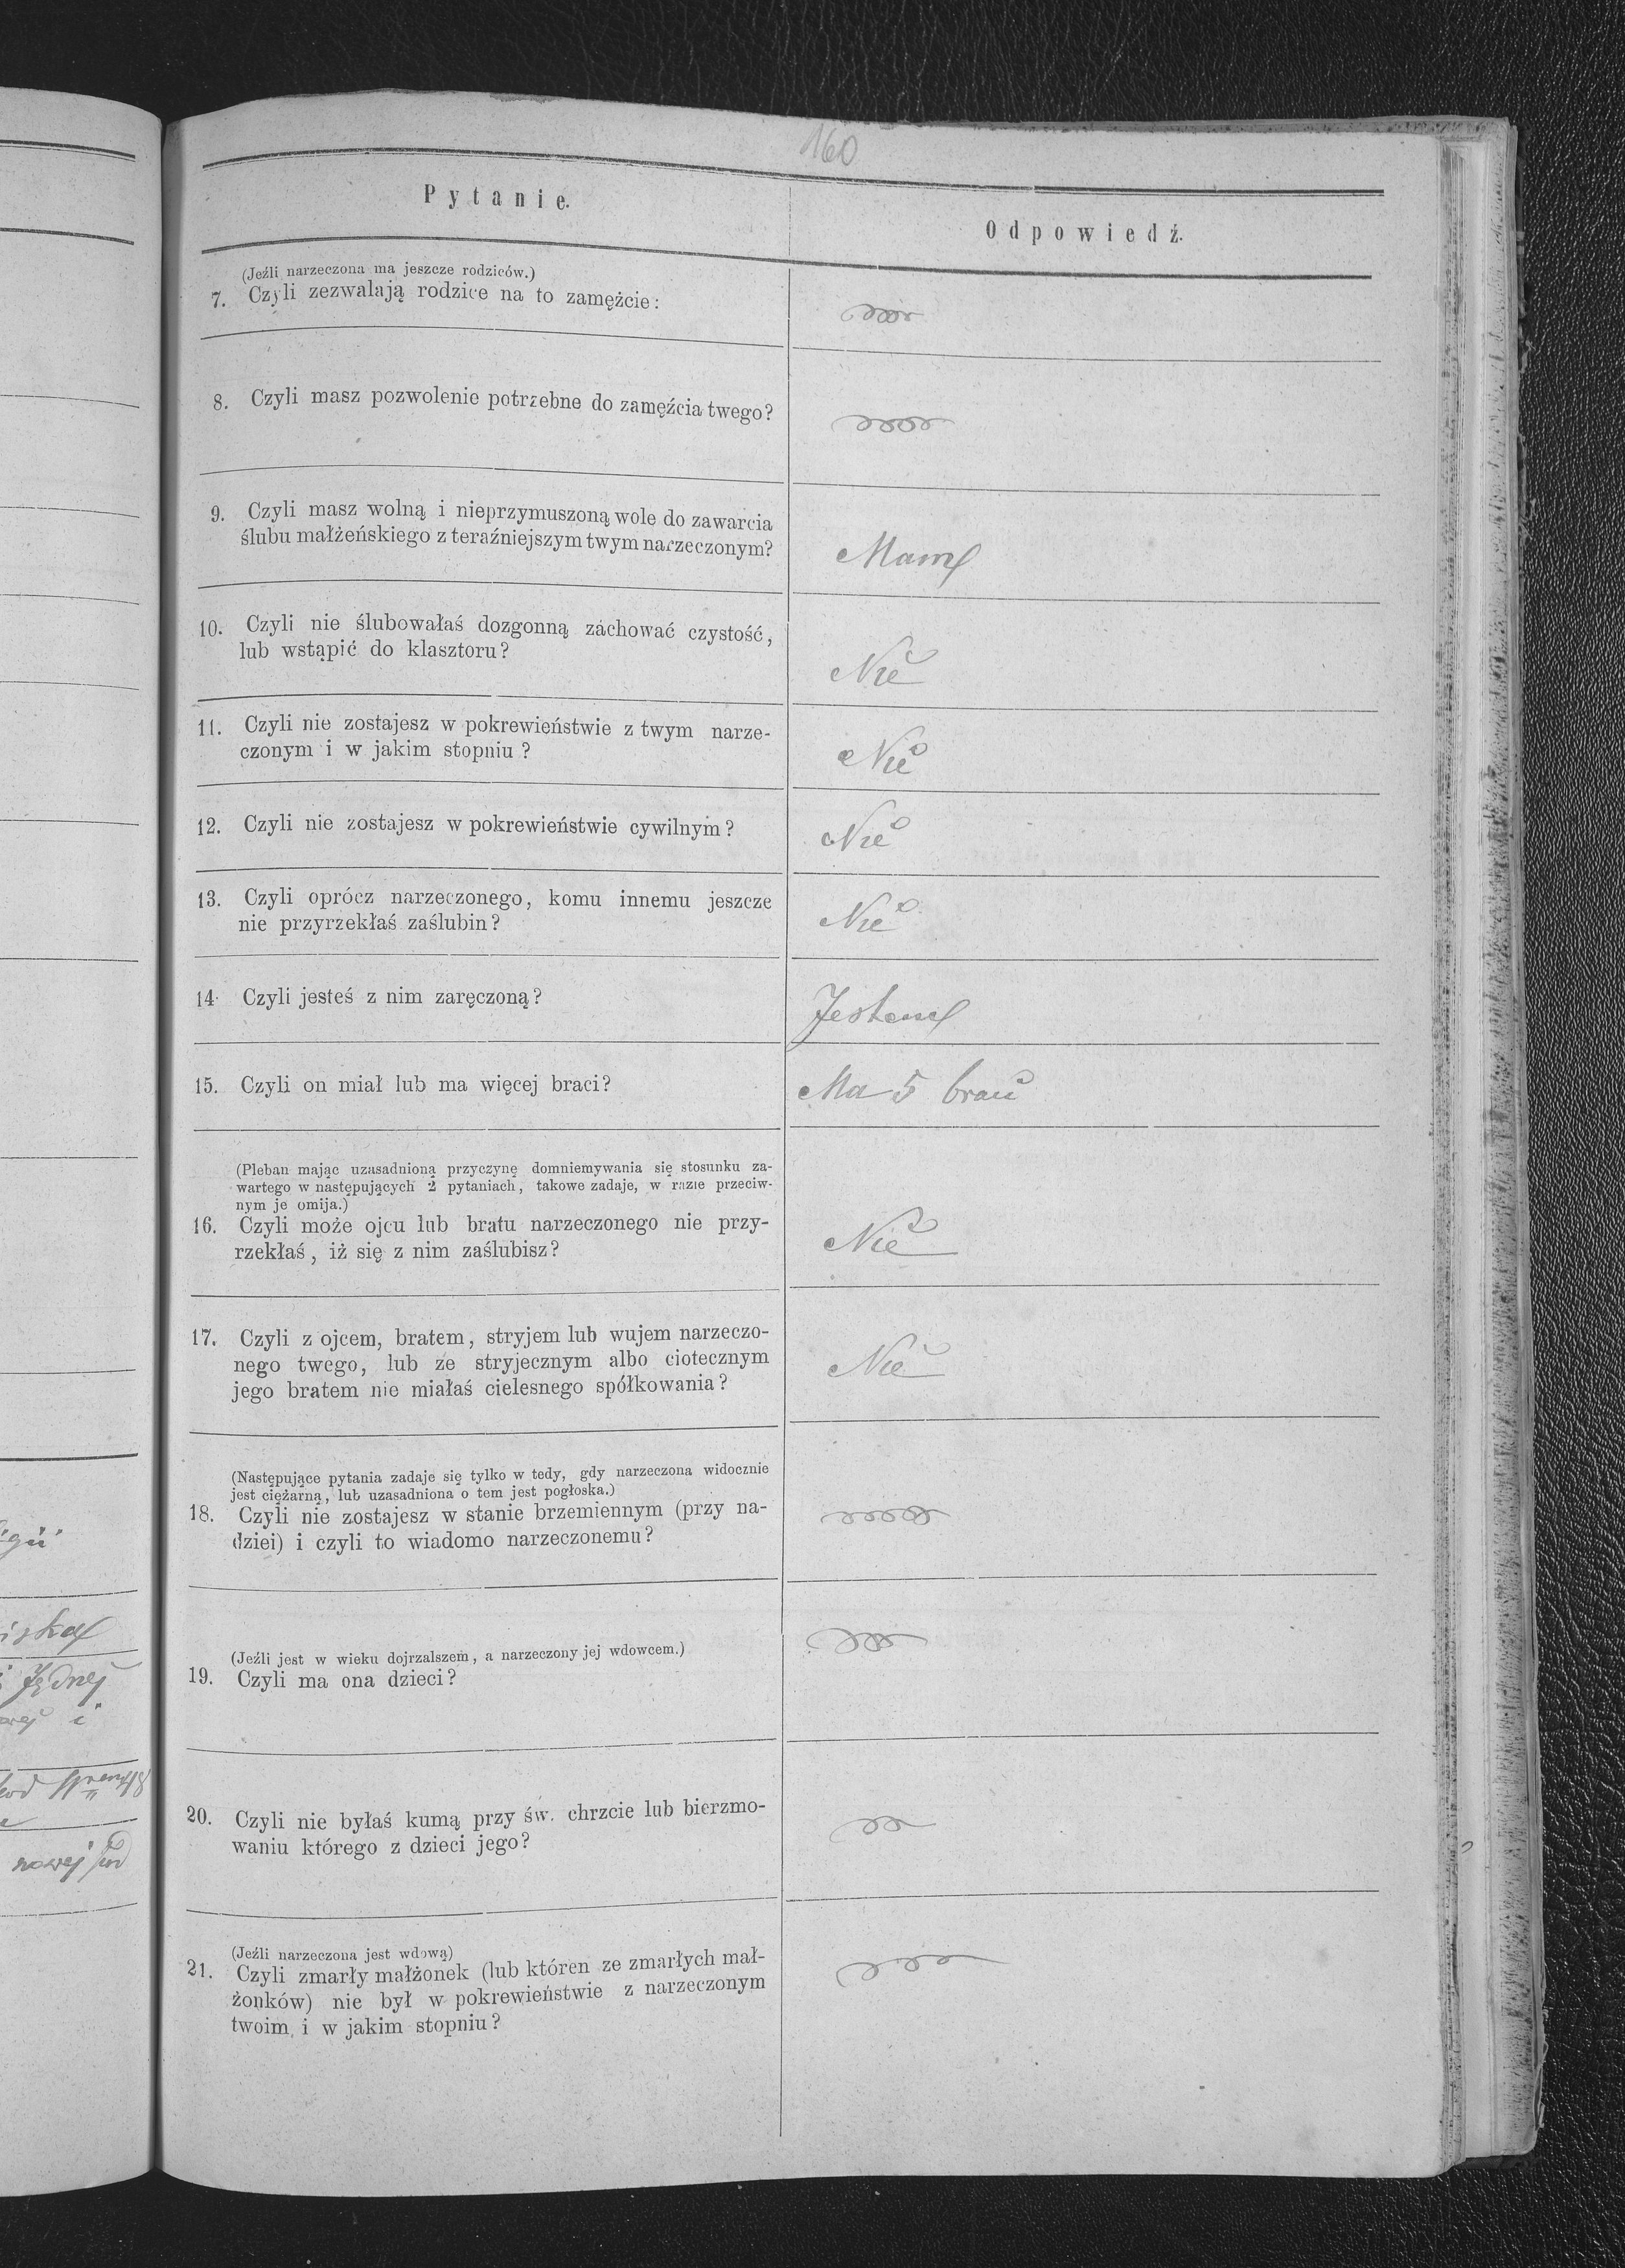 160
Pytanie.
Odpowiedź.
(Jeźli narzeczona ma jeszcze rodziców.)
7. Czyli zezwalają rodzice na to zamężcie:
8. Czyli masz pozwolenie potrzebne do zamęźcia twego?
9. Czyli masz wolną i nieprzymuszoną wole do zawarcia
ślubu małżeńskiego z teraźniejszym twym narzeczonym?
Mam
10. Czyli nie ślubowałaś dozgonną zachować czystość,
lub wstąpić do klasztoru?
Nie
11. Czyli nie zostajesz w pokrewieństwie z twym narze-
czonym i w jakim stopniu?
Nie
12. Czyli nie zostajesz w pokrewieństwie cywilnym?
Nie
13. Czyli oprócz narzeczonego, komu innemu jeszcze
nie przyrzekłaś zaślubin?
Nie
14. Czyli jesteś z nim zaręczoną?
Jestem
15. Czyli on miał lub ma więcej braci?
Ma 5 braci
(Pleban mając uzasadnioną przyczynę domniemywania się stosunku za-
wartego w następujących 2 pytaniach, takowe zadaje, w razie przeciw-
nym je omija.)
16. Czyli może ojcu lub bratu narzeczonego nie przy-
rzekłaś, iż się z nim zaślubisz?
Nie
17. Czyli z ojcem, bratem, stryjem lub wujem narzeczo-
nego twego, lub ze stryjecznym albo ciotecznym
jego bratem nie miałaś cielesnego spółkowania?
Nie
(Następujące pytania zadaje się tylko w tedy, gdy narzeczona widocznie
jest ciężarną, lub uzasadniona o tem jest pogłoska.)
18. Czyli nie zostajesz w stanie brzemiennym (przy na-
dziei) i czyli to wiadomo narzeczonemu?
(Jeźli jest w wieku dojrzalszem, a narzeczony jej wdowcem.)
19. Czyli ma ona dzieci?
20. Czyli nie byłaś kumą przy św. chrzcie lub bierzmo-
waniu którego z dzieci jego?
(Jeźli narzeczona jest wdową)
21. Czyli zmarły małżonek (lub któren ze zmarłych mał-
żonków) nie był w pokrewieństwie z narzeczonym
twoim, i w jakim stopniu?